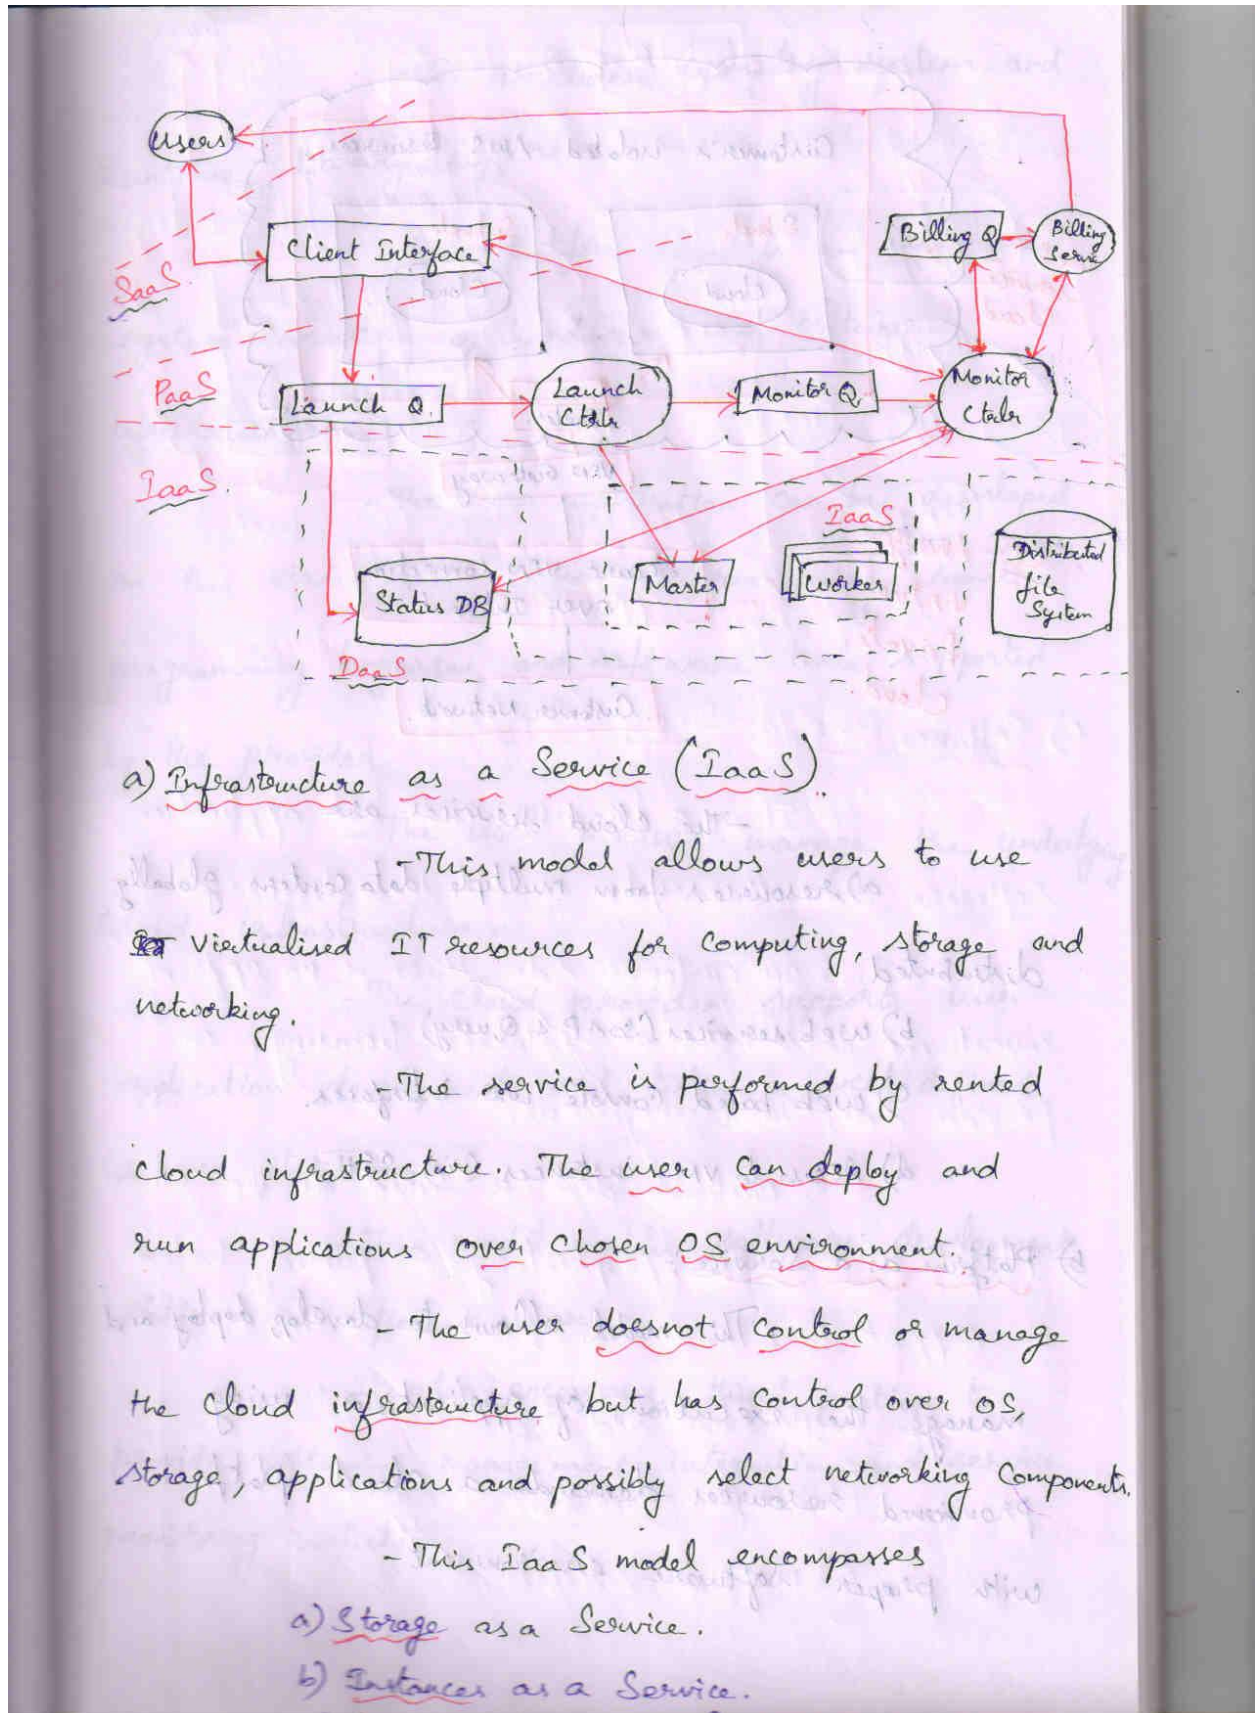 Users
Client Interface
Billing Q
Billing
SaaS
PaaS
Launch Q.
Launch
Ctrlr
Monitor Q
Monitor
Ctrlr
IaaS.
IaaS
Status DB
Master
Worker
Distributed
file
System
DaaS
a) Infrastructure as a Service (IaaS).
- This model allows users to use
virtualised IT resources for computing, storage and
networking.
- The service is performed by rented
cloud infrastructure. The user can deploy and
run applications over chosen OS environment.
- The user doesnot control or manage
the cloud infrastructure but has control over OS,
storage, applications and possibly select networking components.
- This IaaS model encompasses
a) Storage as a Service.
b) Instances as a Service.